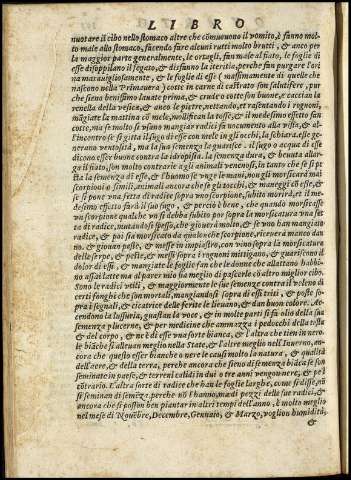 LIBRO
nuotare il cibo nello stomaco altre che cõmuouono il vomito, è fanno mol-
to male allo stomaco, facendo fare alcuni rutti molto brutti, & anco per
la maggior parte generalmente, le ortagli, fan male al fiato, le foglie di
esse disoppilano il fegato, & disfanno la iteritia, perche fan purgare l'ori
na marauigliosamente, & le foglie di esse (massimamente di quelle che
nascono nella Primauera) cotte in carne di castrato son salutifere, pur
che siena benissimo lauate prima, & crude ò cotte son buone, è caccian la
renella della vesica, & anco le pietre, nettando, et rasentando i rognoni,
mãgiate la mattina cõ mele, mollifican la tosse, & il medesimo effetto fan
cotte, ma se molto si vsano mangiar radici fa nocumento alla vista, & al-
l'incontro se si gitta il sugo di esse con mele in gli occhi, la schiara, esse ge-
nerano ventosità, ma la sua semenza la guarisce. il sugo o acqua di esse
dicono esser buone contra la idropisia. la semenza dura, & beuuta allar-
ga il fiato, son molto contrarie a gli animali venenosi, in tanto che se si pe
sta la semenza di esse, & l'huomo se vnge le mani, non gli morsicarà mai
scorpioni ò simili, animali ancora che se gli tocchi, & maneggi cõ esse, &
se si pone vna fetta di radice sopra vno scorpione, subito morirà, et il me-
desimo effetto fa di il suo sugo, è perciò è bene, che quando morsicasse
vn scorpione qualche vn si debba subito por sopra la morsicatura vna fet
ta di radice, mutandose spesso, che giouerà molto, & se vno hau mangiato
radice, & poi sia morsicato da qualunche scorpione, niceuerà poco dan
no, & giouano paste, & messe in impiastro, con vino sopra la morsicatura
delle serpe, & peste, & messe sopra i rognoni mittigano, & guariscono il
dolor di essi, & mangiate le foglie fan che le donne che allattano habbi-
no assai latte ma al parer mio sia meglio di pascerle cõ altro miglior cibo.
Sono le radici vtili, & maggiormente le sue semenze contra il veleno di
certi fonghi che son mortali, mangiandosi sopra di essi triti, & poste so-
pra i segnali, è cicatrice delle ferite le lieuano, & dan buon colore. Ac-
cendono la lussuria, guastan la voce, & in molte parti si fa olio della sua
semenza plucerne, & per medicine che ammazza i pedocchi della testa
& del corpo, & ne è di esse vna sorte bianca, & l'altra che tien in nero,
le biãche si alleuan meglio nella State, & l'altre meglio nell'Inuerno, an-
cora che questo esser bianche o nere le causi molto la natura, & qualità
dell'aere, & della terra, perche ancora che sieno di semenza biãca se son
seminate in paese, & terreni calidi in duo o tre anni vengon nere, & pel
cõtrario. L'altra sorte di radice che han le foglie larghe, come si disse, nõ
si seminan di semẽza. perche nõ l'hanno, ma di pezzi delle sue radici, &
ancora che si possin ben piantar in altri tempi dell'anno, è molto meglio
nel mese di Nouẽbre, Decembre, Gennaio, & Marzo, voglion humidità,
&